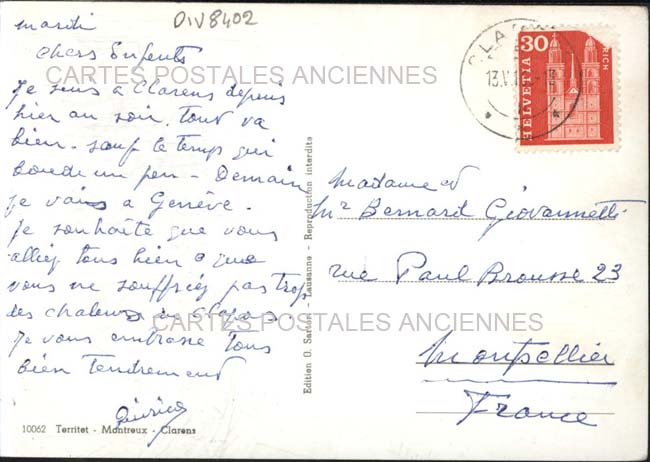 mardi
DIV8402
Chers Enfants
CARTES POSTALES ANCIENNES
Je suis à Clarens depuis
hier au soir. tout va
bien - sauf le temps qui
boude un peu - Demain
je vais à Genève.
Je souhaite que vous
alliez tous bien & que
vous ne souffriez pas trop
des chaleurs
CARTES POSTALES ANCIENNES
Je vous embrasse tous
bien tendrement
10062 Territet - Montreux - Clarens
Edition O. Sartori - Lausanne - Reproduction interdite
CLA
13.V
30
HELVETIA
RICH
Madame et
Mr Bernard Giovannetti
rue Paul Brousse 23
Montpellier
France